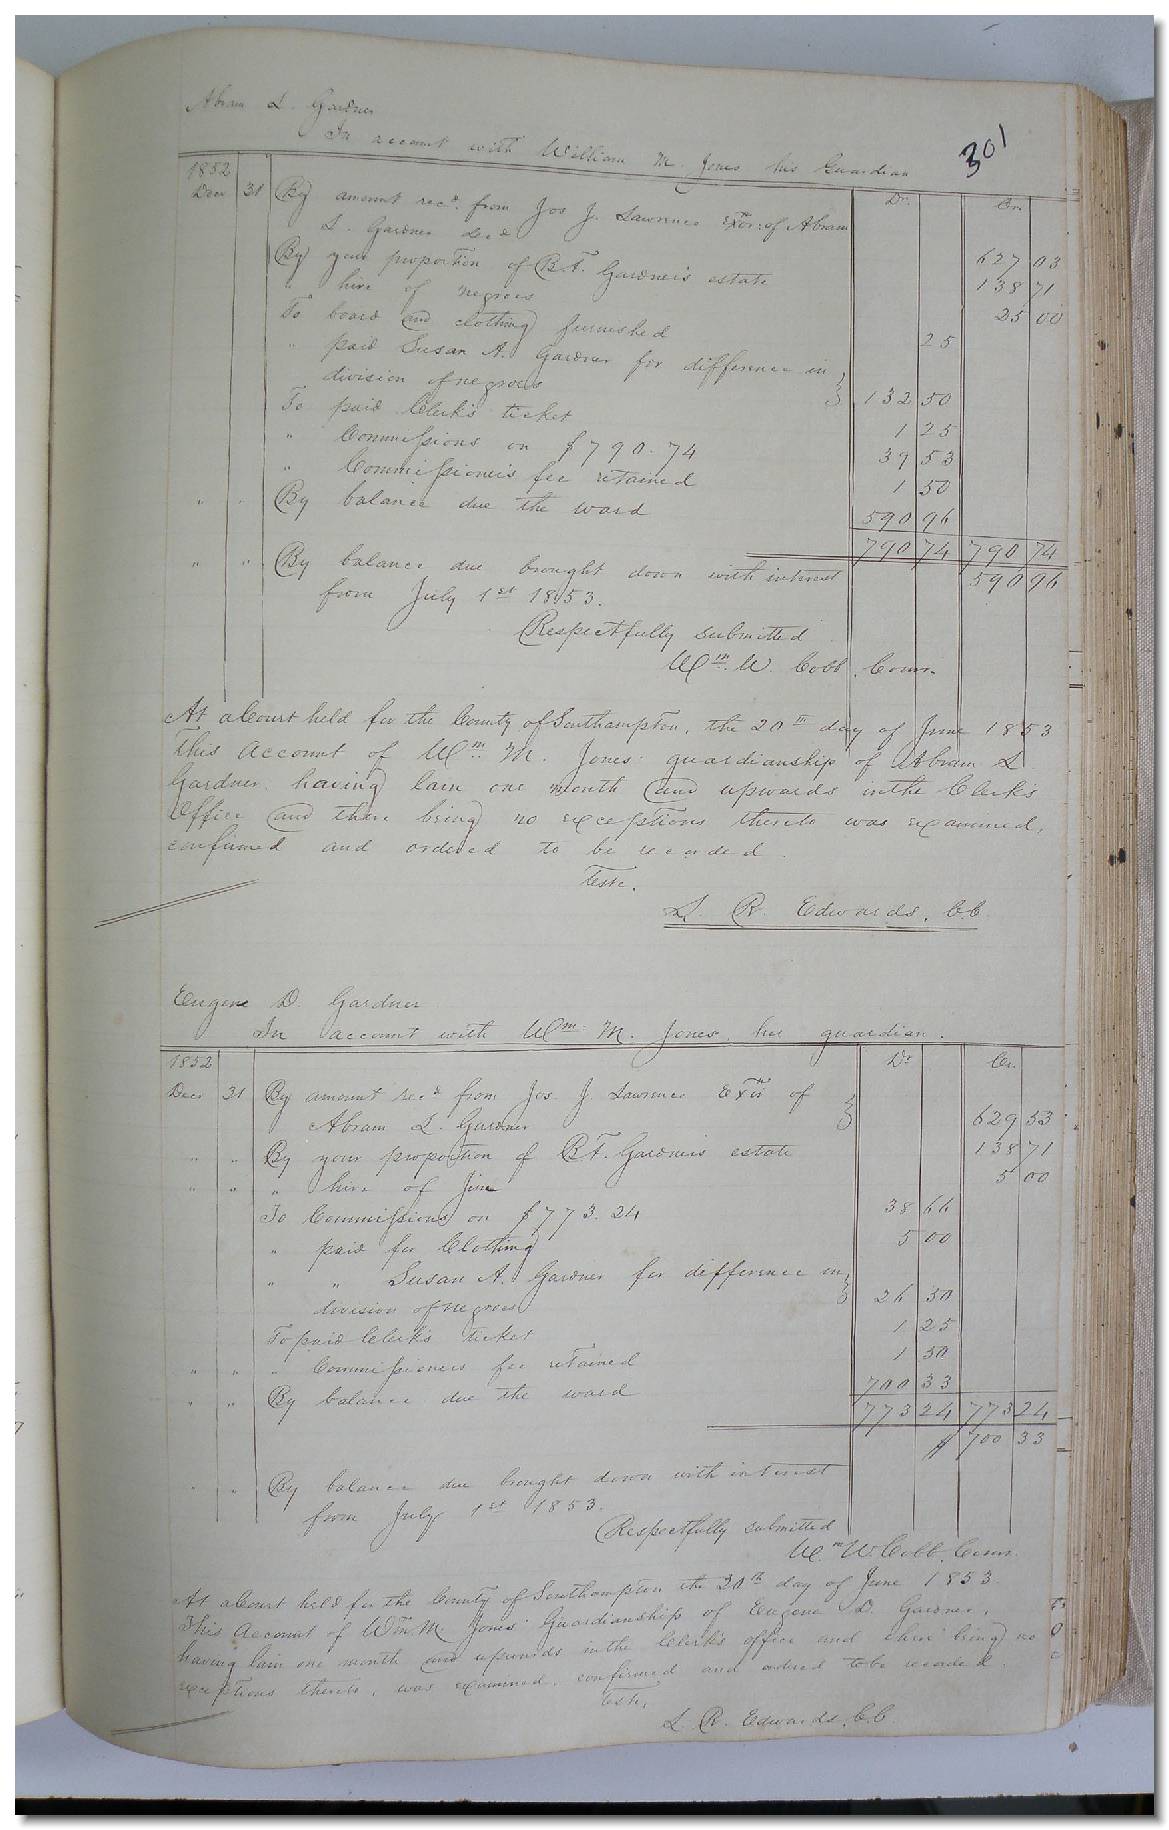 Abram L. Gardner
In account with William M. Jones his Guardian
301
1852 Dr. Cr.
Decr 31 By amount recd. from Jos J. Lawrence Exor: of Abram
L. Gardner decd 627 03
By your proportion of B.T. Gardner's estate 138 71
" hire of negroes 25 00
To board and clothing furnished 25
" paid Susan A. Gardner for difference in
division of negroes 132 50
To paid Clerk's ticket 1 25
" Commissions on $790.74 39 53
" Commissioner's fee retained 1 50
" " By balance due the ward 590 96
790 74 790 74
" " By balance due brought down with interest 590 96
from July 1st 1853.
Respectfully submitted
Wm. W. Cobb, Comr.
At a Court held for the County of Southampton, the 20th day of June 1853
This Account of Wm. M. Jones' guardianship of Abram L
Gardner, having lain one month and upwards in the Clerk's
Office and there being no exceptions thereto was examined,
confirmed and ordered to be recorded.
Teste.
L. R. Edwards, C.C.
Eugene D. Gardner
In account with Wm. M. Jones, her guardian.
1852 Dr Cr.
Decr 31 By amount recd from Jos. J. Lawrence Exor of
Abram L. Gardner 629 53
" " By your proportion of B.T. Gardner's estate 138 71
" " " hire of Jim 5 00
To Commissions on $773.24 38 66
" paid for Clothing 5 00
" " Susan A. Gardner for difference in
division of negroes 26 50
To paid Clerk's ticket 1 25
" " " Commissioners fee retained 1 50
" " By balance due the ward 700 33
773 24 773 24
$ 700 33
" " By balance due brought down with interest
from July 1st 1853.
Respectfully submitted
Wm W Cobb, Comr.
At a Court held for the County of Southampton the 20th day of June 1853.
This Account of Wm M. Jones' Guardianship of Eugene D. Gardner,
having lain one month and upwards in the Clerk's office and there being no
exceptions thereto, was examined, confirmed and ordered to be recorded.
Teste,
L. R. Edwards, C.C.